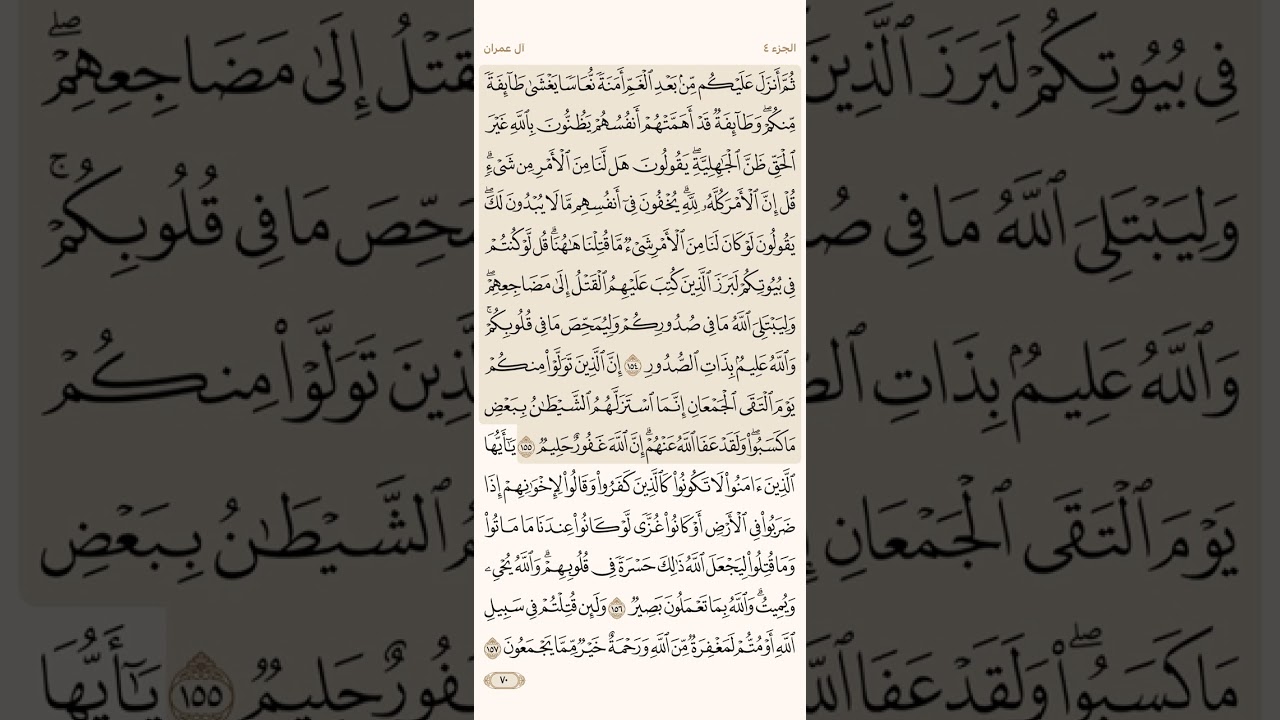 الجزء ٤
آل عمران
ثُمَّ أَنزَلَ عَلَيۡكُم مِّنۢ بَعۡدِ ٱلۡغَمِّ أَمَنَةٗ نُّعَاسٗا يَغۡشَىٰ طَآئِفَةٗ
مِّنكُمۡۖ وَطَآئِفَةٞ قَدۡ أَهَمَّتۡهُمۡ أَنفُسُهُمۡ يَظُنُّونَ بِٱللَّهِ غَيۡرَ
ٱلۡحَقِّ ظَنَّ ٱلۡجَٰهِلِيَّةِۖ يَقُولُونَ هَل لَّنَا مِنَ ٱلۡأَمۡرِ مِن شَيۡءٖۗ
قُلۡ إِنَّ ٱلۡأَمۡرَ كُلَّهُۥ لِلَّهِۗ يُخۡفُونَ فِيٓ أَنفُسِهِم مَّا لَا يُبۡدُونَ لَكَۖ
يَقُولُونَ لَوۡ كَانَ لَنَا مِنَ ٱلۡأَمۡرِ شَيۡءٞ مَّا قُتِلۡنَا هَٰهُنَاۗ قُل لَّوۡ كُنتُمۡ
فِي بُيُوتِكُمۡ لَبَرَزَ ٱلَّذِينَ كُتِبَ عَلَيۡهِمُ ٱلۡقَتۡلُ إِلَىٰ مَضَاجِعِهِمۡۖ
وَلِيَبۡتَلِيَ ٱللَّهُ مَا فِي صُدُورِكُمۡ وَلِيُمَحِّصَ مَا فِي قُلُوبِكُمۡۚ
وَٱللَّهُ عَلِيمُۢ بِذَاتِ ٱلصُّدُورِ ١٥٤ إِنَّ ٱلَّذِينَ تَوَلَّوۡاْ مِنكُمۡ
يَوۡمَ ٱلۡتَقَى ٱلۡجَمۡعَانِ إِنَّمَا ٱسۡتَزَلَّهُمُ ٱلشَّيۡطَٰنُ بِبَعۡضِ
مَا كَسَبُواْۖ وَلَقَدۡ عَفَا ٱللَّهُ عَنۡهُمۡۗ إِنَّ ٱللَّهَ غَفُورٌ حَلِيمٞ ١٥٥ يَٰٓأَيُّهَا
ٱلَّذِينَ ءَامَنُواْ لَا تَكُونُواْ كَٱلَّذِينَ كَفَرُواْ وَقَالُواْ لِإِخۡوَٰنِهِمۡ إِذَا
ضَرَبُواْ فِي ٱلۡأَرۡضِ أَوۡ كَانُواْ غُزّٗى لَّوۡ كَانُواْ عِندَنَا مَا مَاتُواْ
وَمَا قُتِلُواْ لِيَجۡعَلَ ٱللَّهُ ذَٰلِكَ حَسۡرَةٗ فِي قُلُوبِهِمۡۗ وَٱللَّهُ يُحۡيِۦ
وَيُمِيتُۗ وَٱللَّهُ بِمَا تَعۡمَلُونَ بَصِيرٞ ١٥٦ وَلَئِن قُتِلۡتُمۡ فِي سَبِيلِ
ٱللَّهِ أَوۡ مُتُّمۡ لَمَغۡفِرَةٞ مِّنَ ٱللَّهِ وَرَحۡمَةٌ خَيۡرٞ مِّمَّا يَجۡمَعُونَ ١٥٧
٧٠